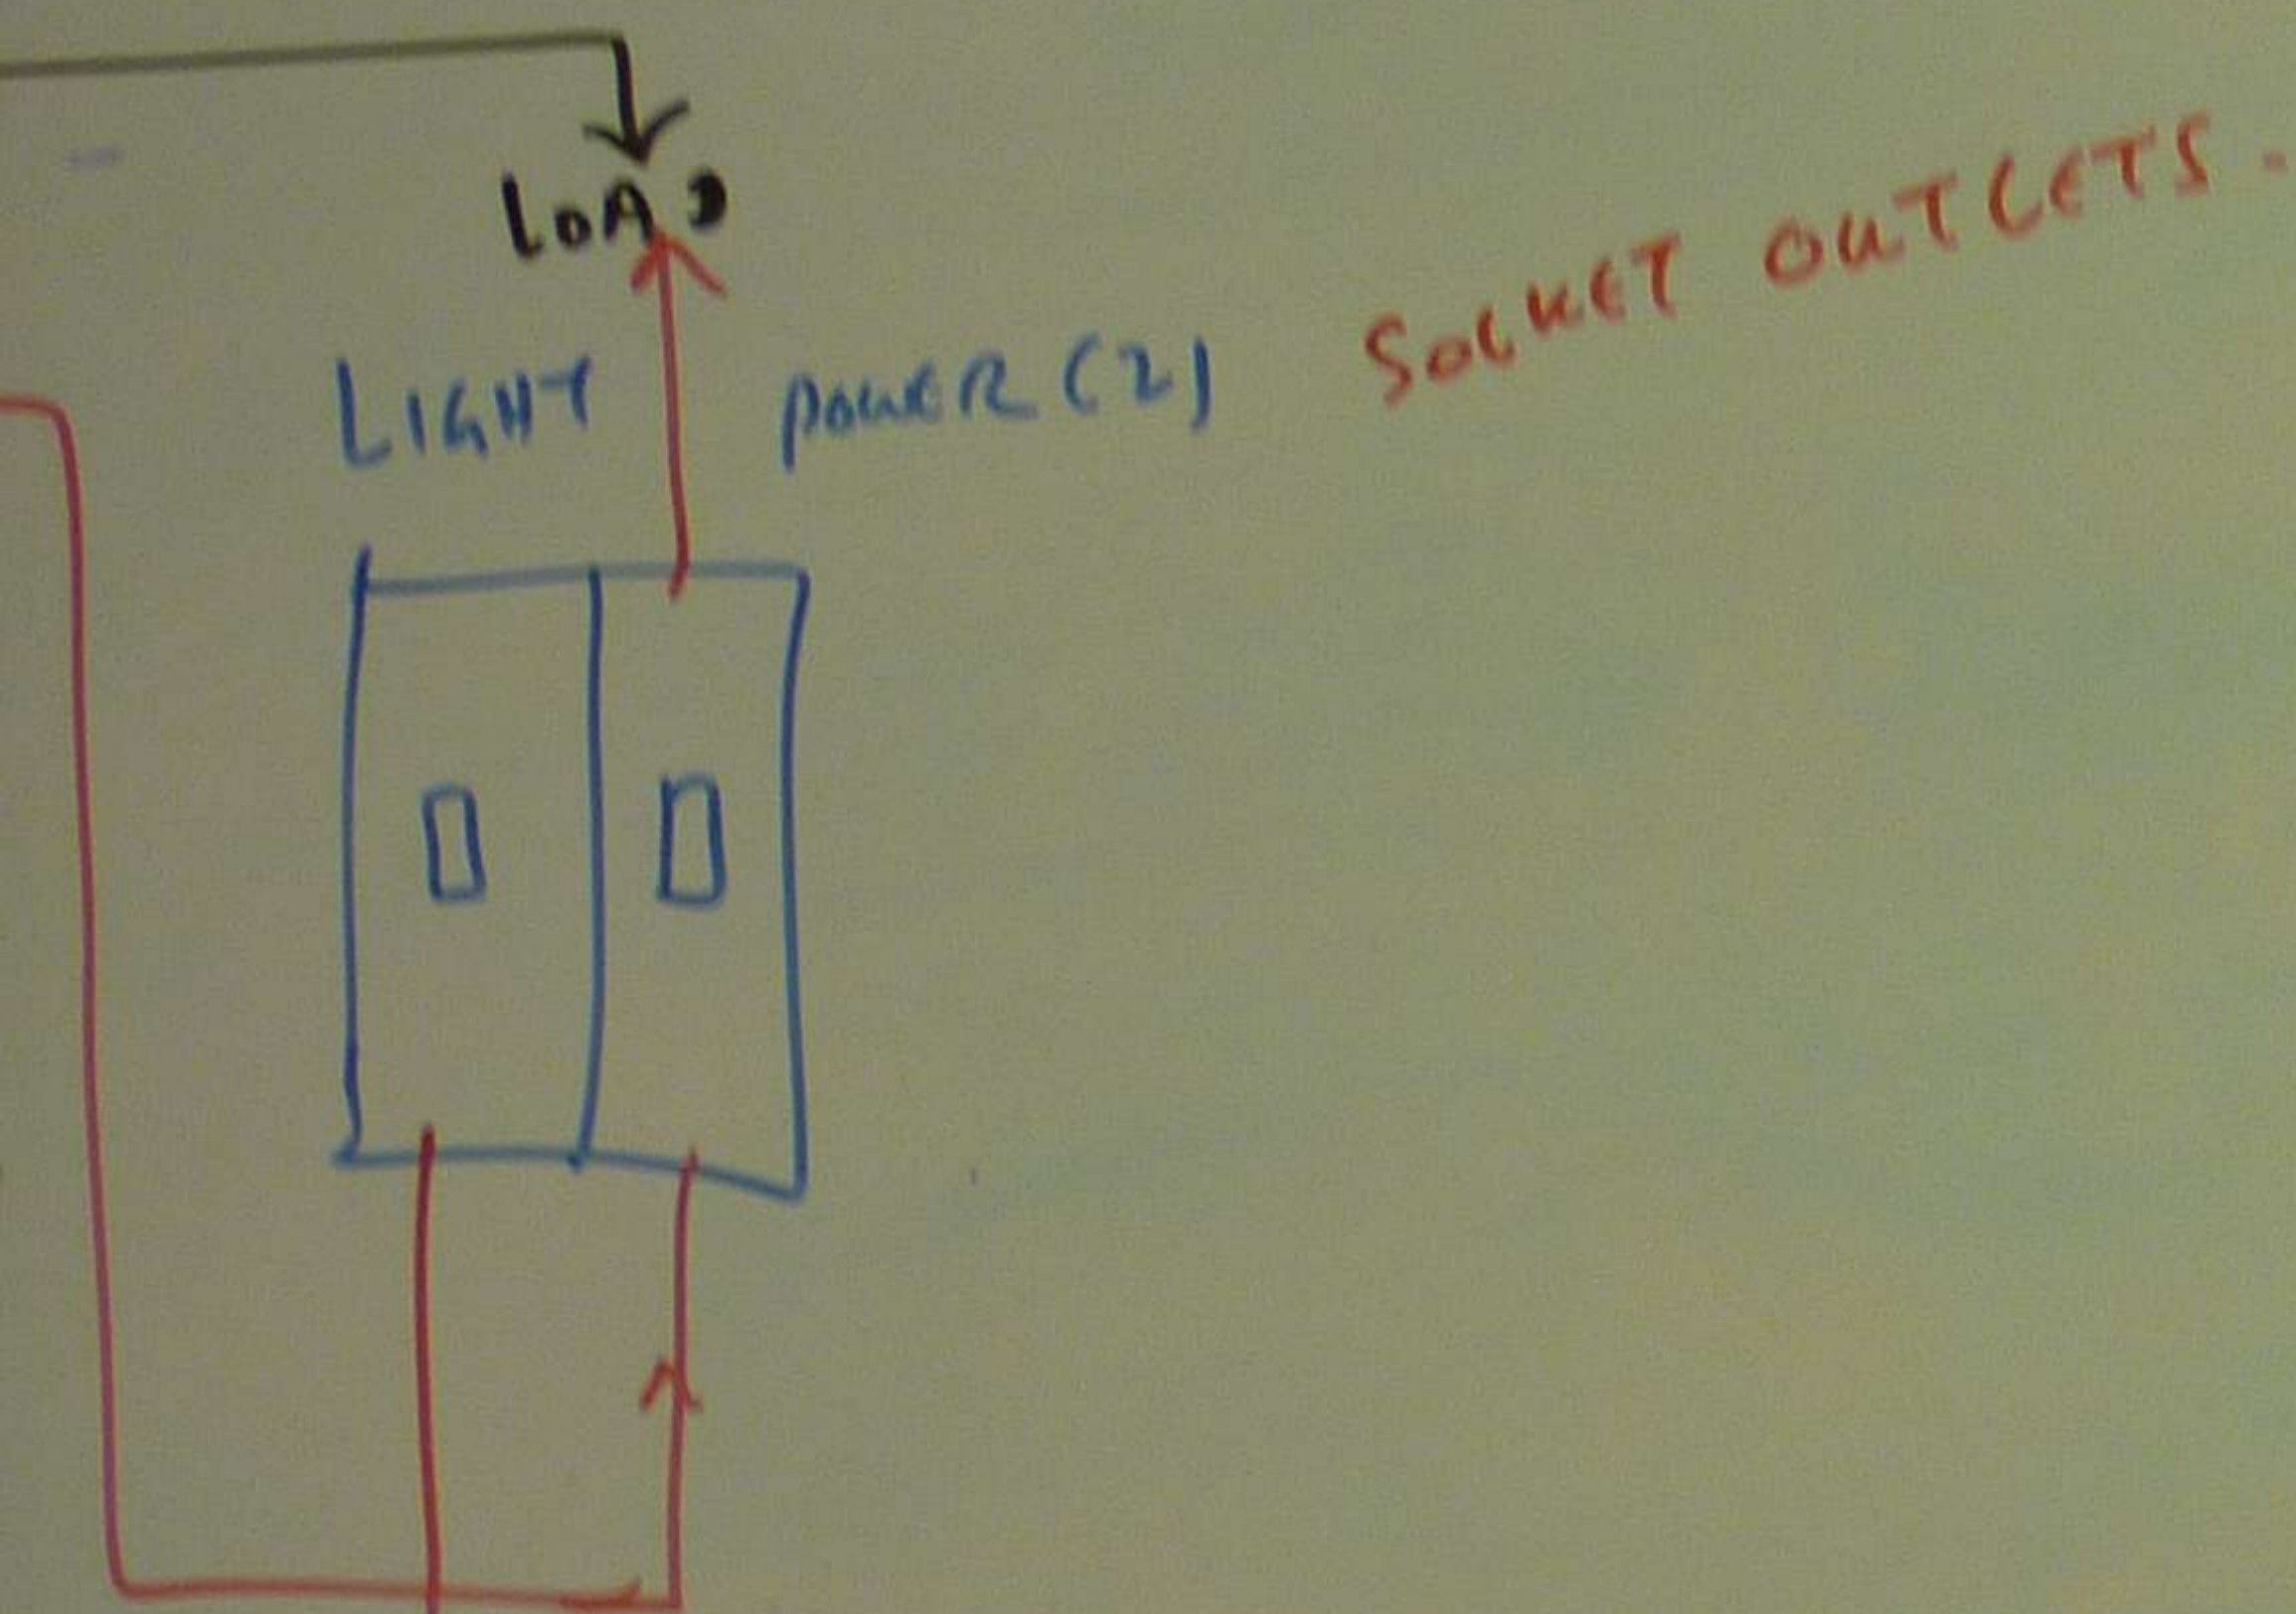 LOAD
LIGHT POWER (2)
SOCKET OUTLETS.